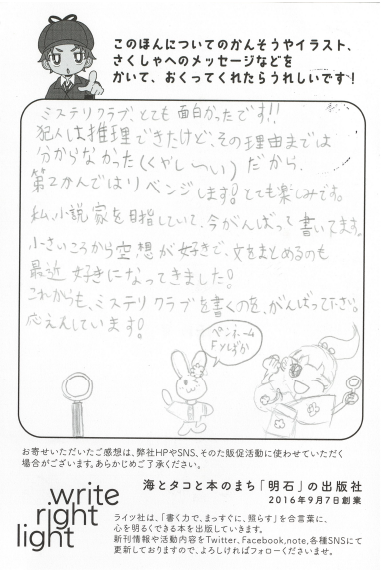 このほんについてのかんそうやイラスト、
さくしゃへのメッセージなどを
かいて、おくってくれたらうれしいです！
ミステリクラブ、とても面白かったです!!
犯人は推理できたけど、その理由までは
分からなかった(くやし〜い)だから、
第2かんではリベンジします!とても楽しみです。
私、小説家を目指していて、今がんばって書いてます。
小さいころから空想が好きで、文をまとめるのも
最近好きになってきました!
これからも、ミステリクラブを書くのを、がんばって下さい。
応えんしています!
ペンネーム
お寄せいただいたご感想は、弊社HPやSNS、そのた販促活動に使わせていただく
場合がございます。あらかじめご了承ください。
海とタコと本のまち「明石」の出版社
2016年9月7日創業
write
right
light
ライツ社は、「書く力で、まっすぐに、照らす」を合言葉に、
心を明るくできる本を出版していきます。
新刊情報や活動内容をTwitter、Facebook、note、各種SNSにて
更新しておりますので、よろしければフォローくださいませ。